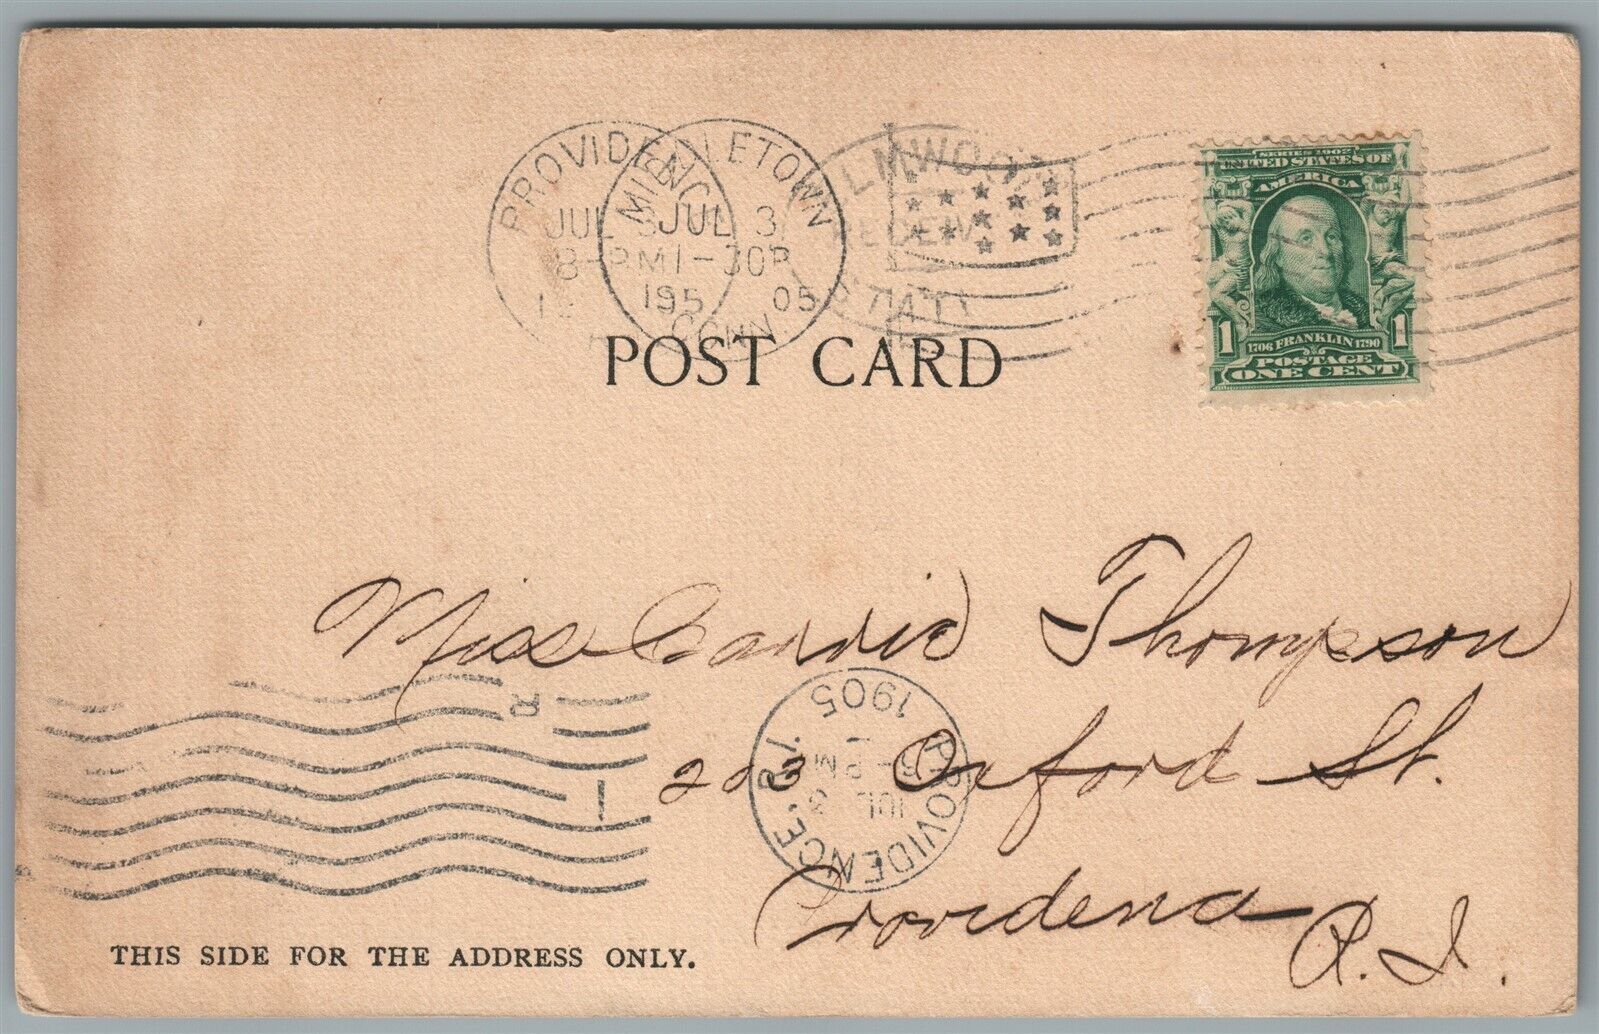 PROVIDENCE
JUL 3
8-PM
MIDDLETOWN
JUL 3
1-30P
1905
CONN.
ELMWOOD
RECEIV
STATI
SERIES 1902
UNITED STATES OF
AMERICA
1 1
1706 FRANKLIN 1790
POSTAGE
ONE CENT
POST CARD
Miss Carrie Thompson
203 Oxford St.
Providence
R.I.
PROVIDENCE, R.I.
JUL 3
6-PM
1905
R
I
THIS SIDE FOR THE ADDRESS ONLY.